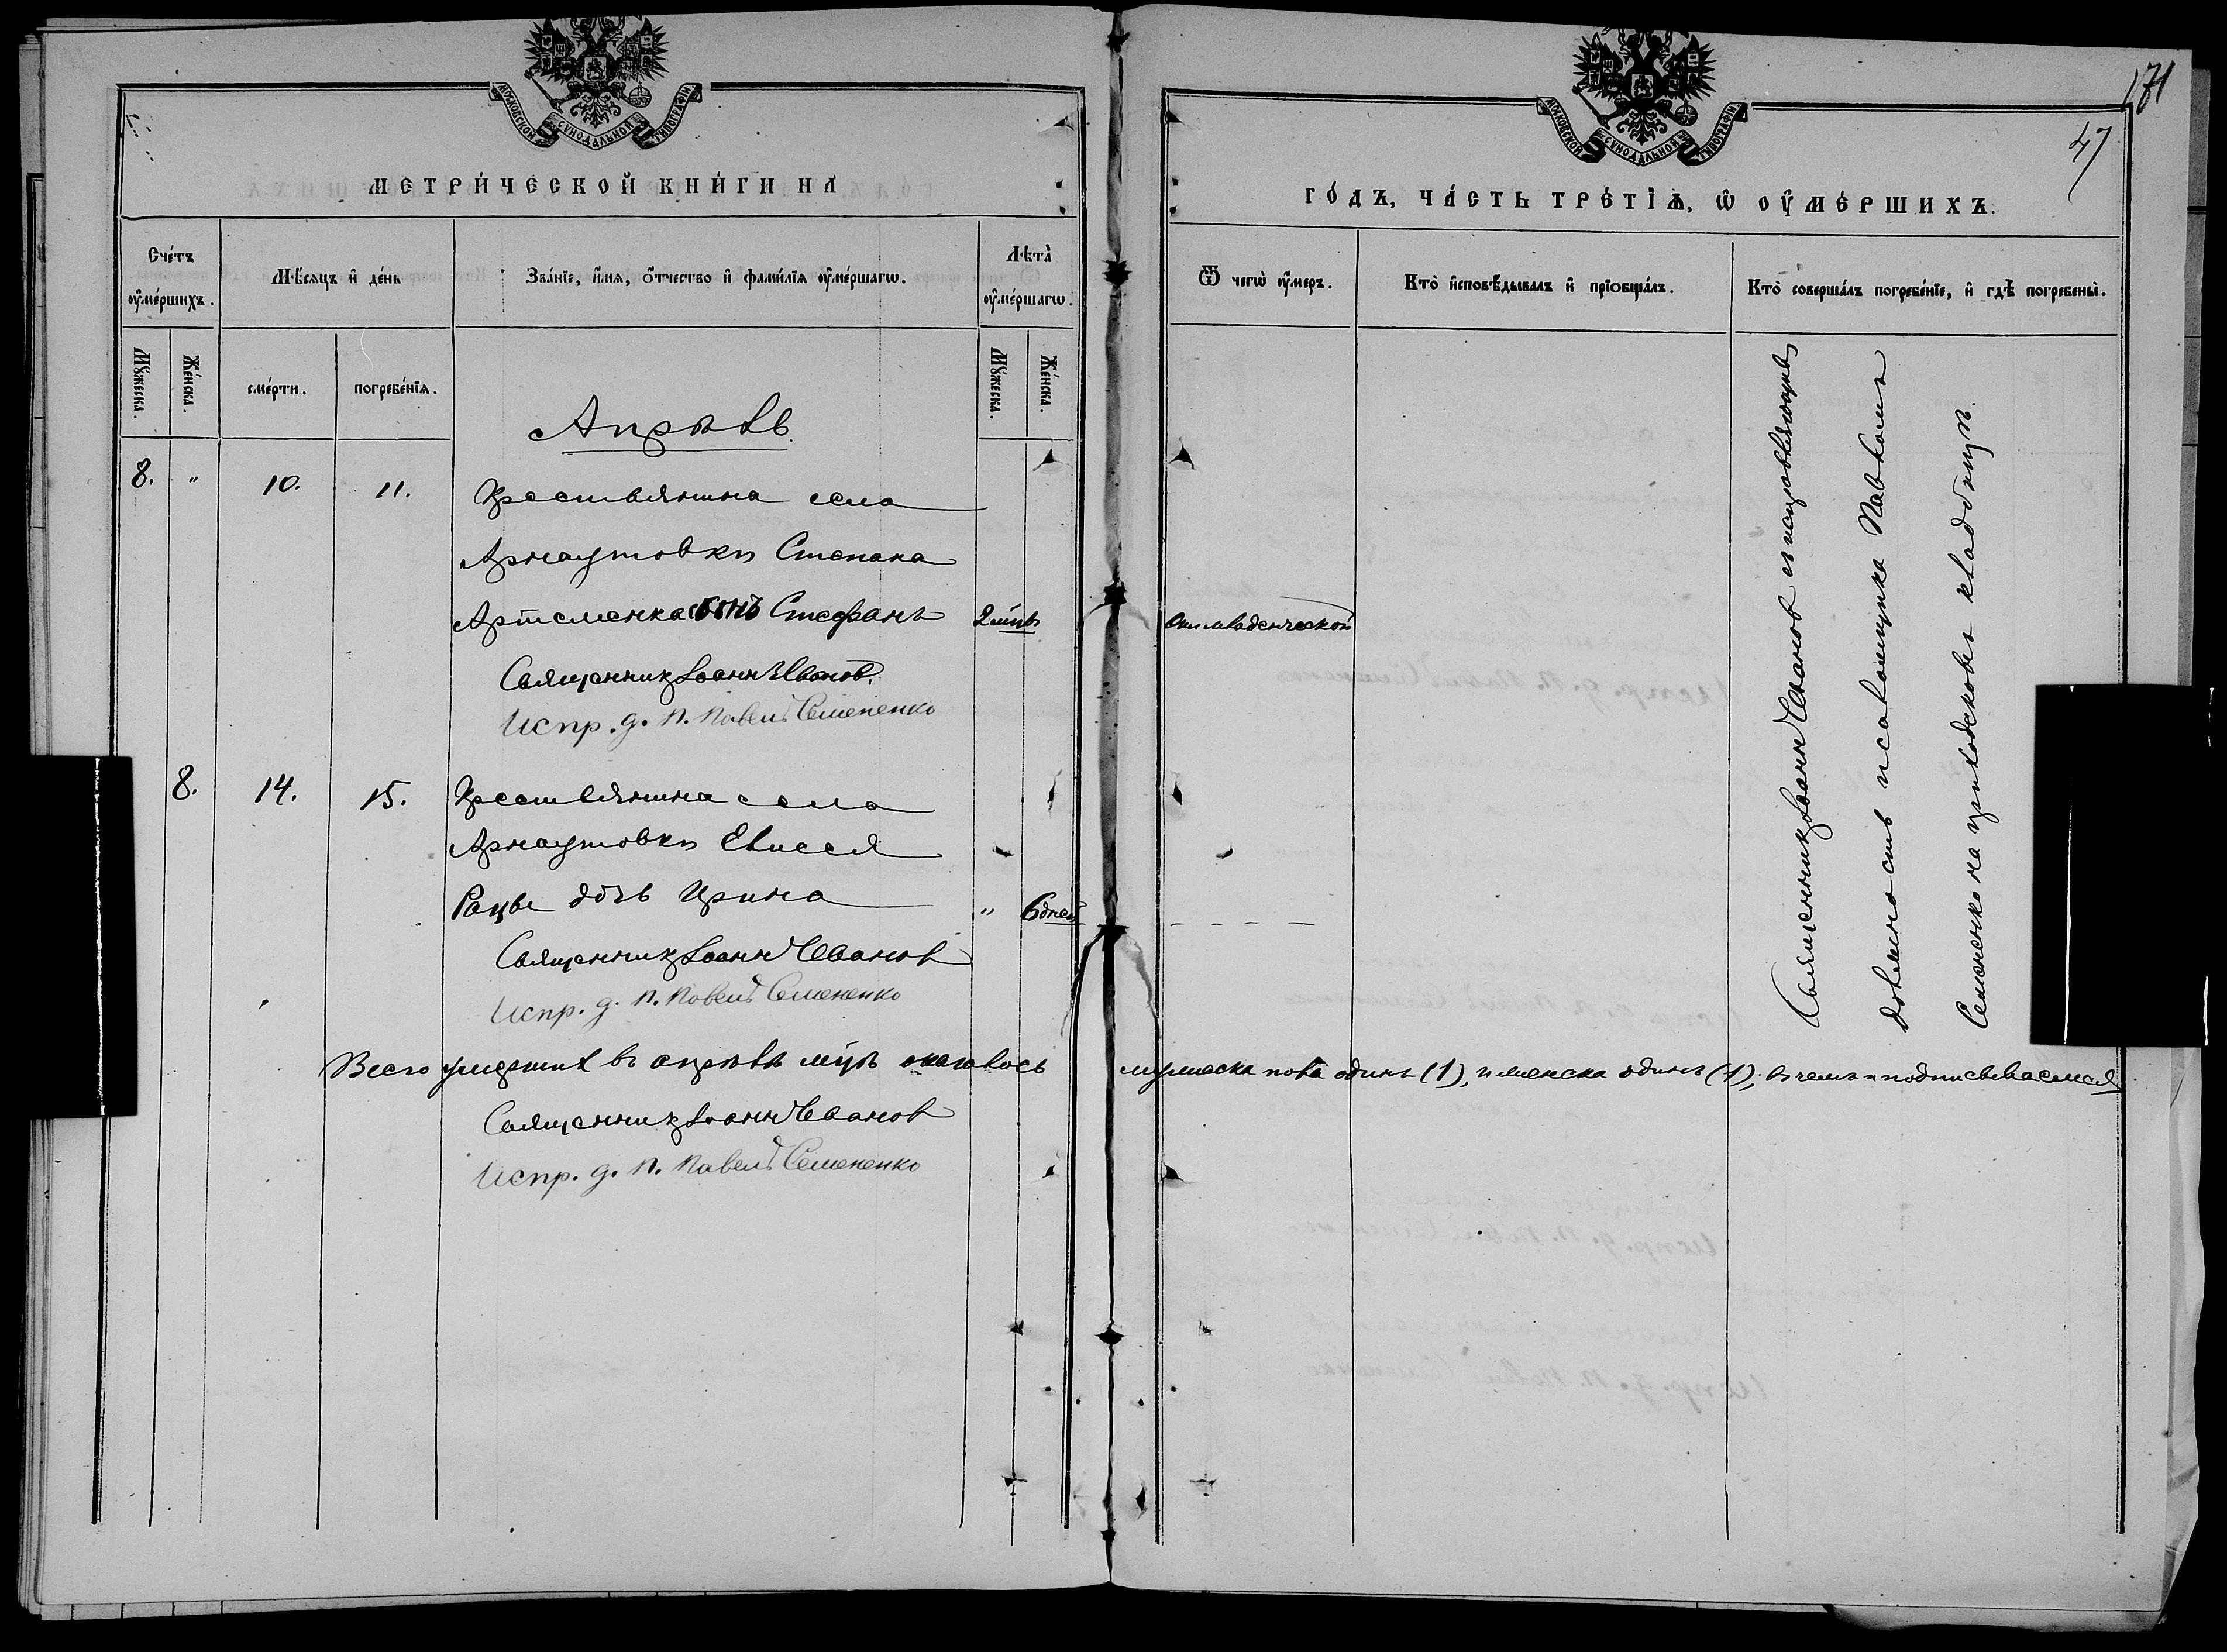 МОСКОВСКОЙ СѴНОДАЛЬНОЙ ТИПОГРАФІИ
МЕТРИ́ЧЕСКОЙ КНИ́ГИ НА
Сче́тъ ᲂу҆ме́ршихъ.
Мѣ́сяцъ и҆ де́нь
Зва́нїе, и҆́мя, ѻ҆́тчество и҆ фами́лїя ᲂу҆ме́ршагѡ.
Лѣ́та ᲂу҆ме́ршагѡ.
Мꙋ́жеска.
Же́нска.
сме́рти.
погребе́нїя.
Мꙋ́жеска.
Же́нска.
Апрѣль
8. " 10. 11. Крестьянина села
Арнаутовки Степана
Артеменка сынъ Стефанъ 2 мц
Священникъ Іоаннъ Иванов.
Испр. д. п. Павелъ Семененко
8. 14. 15. Крестьянина села
Арнаутовки Елисея
дочь Ирина " 6 дней
Священникъ Іоаннъ Иванов
Испр. д. п. Павелъ Семененко
Всего умерших въ апрѣлѣ мцѣ оказалось
Священникъ Іоаннъ Иванов
Испр. д. п. Павелъ Семененко
171
47
МОСКОВСКОЙ СѴНОДАЛЬНОЙ ТИПОГРАФІИ
ГО́ДЪ, ЧА́СТЬ ТРЕ́ТІѦ, Ѡ҆ ОУ҆МЕ́РШИХЪ.
Ѿ чегѡ̀ ᲂу҆́меръ.
Кто̀ и҆сповѣ́дывалъ и҆ прїобща́лъ.
Кто̀ соверша́лъ погребе́нїе, и҆ гдѣ̀ погребены̀.
От младенческой
- - - -
Священникъ Іоаннъ Иванов съ исправляющимъ
должность псаломщика Павломъ
Семененко на приходскомъ кладбищѣ.
мужеска пола одинъ (1), и женска одинъ (1), в чемъ и подписываемся